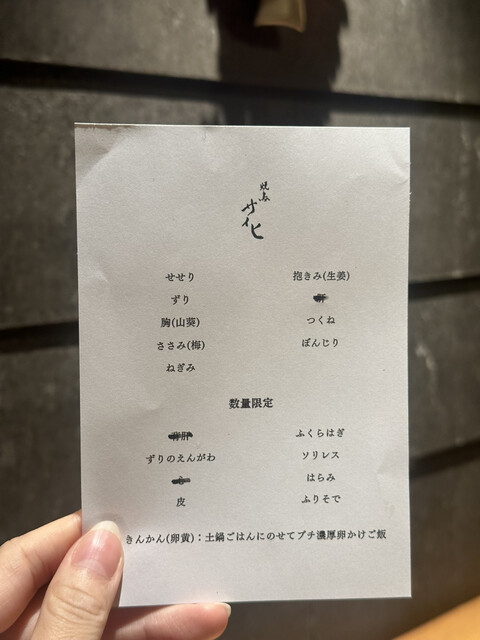 焼鳥
サイヒ
せせり 抱きみ(生姜)
ずり 肝
胸(山葵) つくね
ささみ(梅) ぼんじり
ねぎみ
数量限定
背肝 ふくらはぎ
ずりのえんがわ ソリレス
はらみ
皮 ふりそで
きんかん(卵黄)：土鍋ごはんにのせてプチ濃厚卵かけご飯